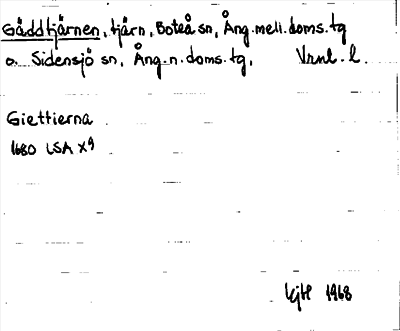 Gäddtjärnen, tjärn, Boteå sn, Ång. mell. doms. tg
o. Sidensjö sn, Ång. n. doms. tg, Vrnl. l.
Giettierna
1680 LSA X9
1968